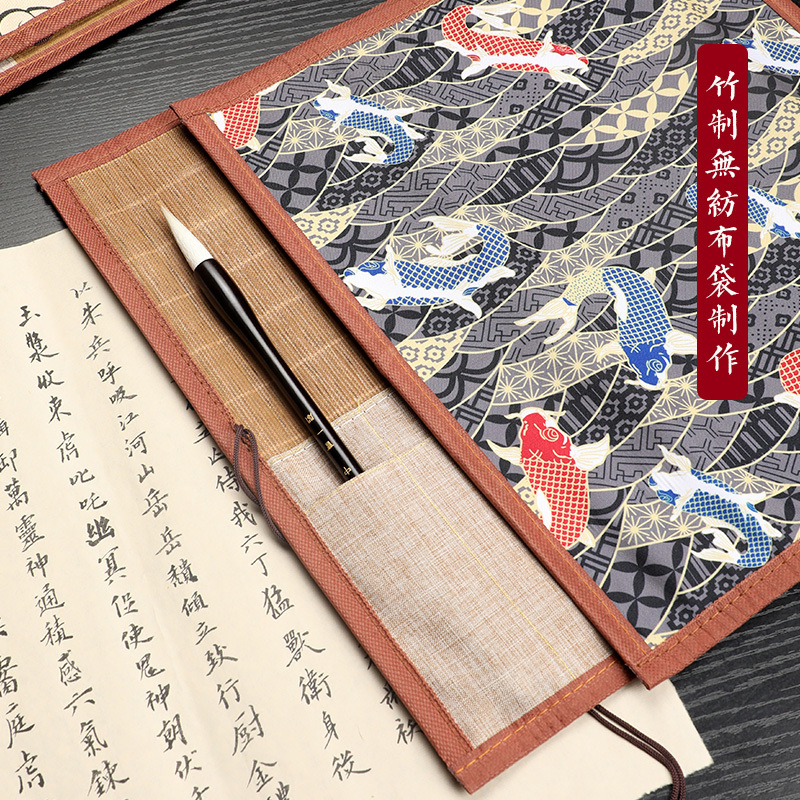 竹制無紡布袋制作
我六丁猛獸衛身役
以朱兵呼吸江河山岳岳積傾立致行厨金
玉漿收束虎叱吒幽冥役使鬼神朝伏
萬靈神通積感六氣鍊
庭虎